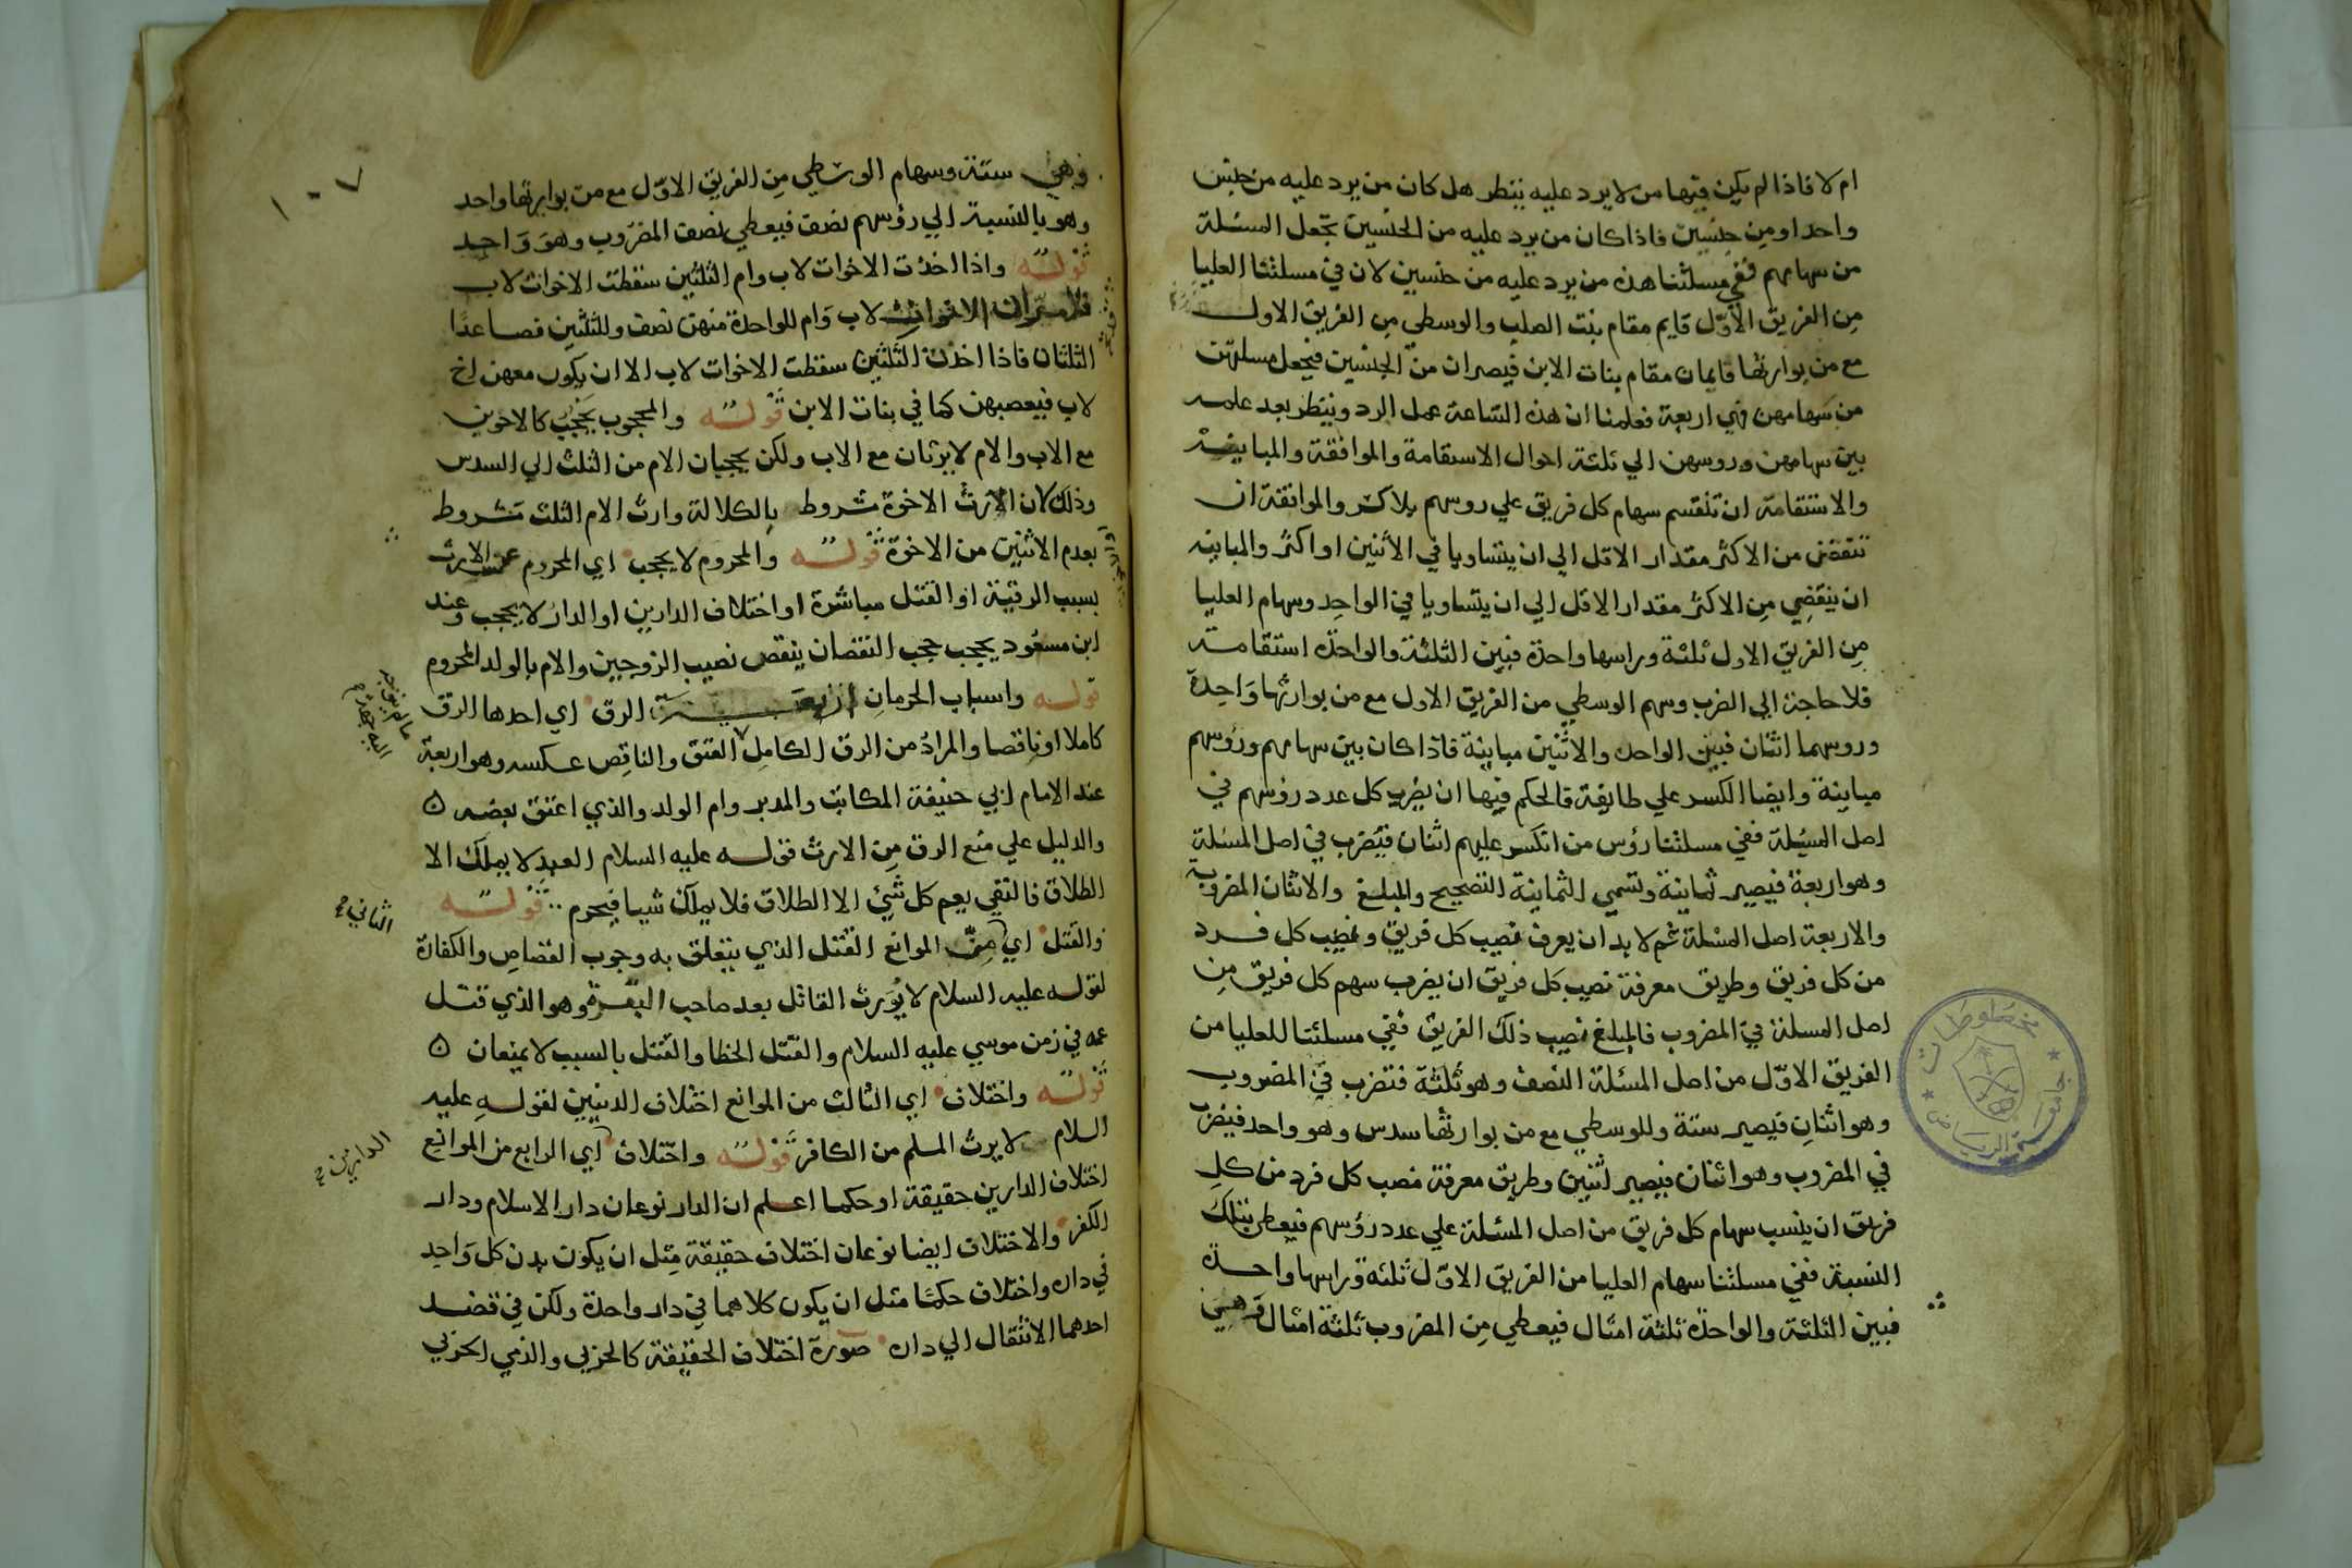 ام لا فاذا لم يكن فيها من لا يرد عليه ينظر هل كان من يرد عليه من جنس
واحد او من جنسين فاذا كان من يرد عليه من الجنسين تجعل المسئلة
من سهامهم ففي مسئلتنا هذه من يرد عليه من جنسين لان في مسئلتنا العليا
من الفريق الاول قايم مقام بنت الصلب والوسطي من الفريق الاول
مع من يوازيها قايمان مقام بنات الابن فيصران من الجنسين فيجعل مسئلتهن
من سهامهن وهي اربعة فعلمنا ان هذه الساعة عمل الرد وينظر بعد علمه
بين سهامهن وروسهن الي ثلثة احوال الاستقامة والموافقة والمباينة
والاستقامة ان تنقسم سهام كل فريق علي روسهم بلا كسر والموافقة ان
تنقض من الاكثر مقدار الاقل الي ان يتساويا في الاثنين او اكثر والمباينه
ان ينقضي من الاكثر مقدار الاقل الي ان يتساويا في الواحد وسهام العليا
من الفريق الاول ثلثة وراسها واحدة فبين الثلثة والواحدة استقامة
فلا حاجة الي الضرب وسهم الوسطي من الفريق الاول مع من يوازيها واحدة
وروسهما اثنان فبين الواحد والاثنين مباينة فاذا كان بين سهامهم وروسهم
مباينة وايضا الكسر علي طايفة فالحكم فيها ان يضرب كل عدد رؤسهم في
اصل المسئلة ففي مسئلتنا رؤس من انكسر عليهم اثنان فيضرب في اصل المسئلة
وهو اربعة فيصير ثمانية وتسمي الثمانية التصحيح والمبلغ والاثنان المضروب
والاربعة اصل المسئلة ثم لا بد ان يعرف نصيب كل فريق ونصيب كل فرد
من كل فريق وطريق معرفة نصيب كل فريق ان يضرب سهم كل فريق من
اصل المسئلة في المضروب فالمبلغ نصيب ذلك الفريق ففي مسئلتنا للعليا من
الفريق الاول من اصل المسئلة النصف وهو ثلثة فتضرب في المضروب
وهو اثنان فيصير ستة وللوسطي مع من يوازيها سدس وهو واحد فيضرب
في المضروب وهو اثنان فيصير اثنين وطريق معرفة نصب كل فرد من كل
فريق ان ينسب سهام كل فريق من اصل المسئلة علي عدد رؤسهم فيعطي بتلك
النسبة ففي مسئلتنا سهام العليا من الفريق الاول ثلثة وراسها واحدة
فبين الثلثة والواحدة ثلثة امثال فيعطي من المضروب ثلثة امثال وهي
مخطوطات
جامعة الرياض
١٠٧
وهي ستة وسهام الوسطي من الفريق الاول مع من يوازيها واحد
وهو بالنسبة الي رؤسهم نصف فيعطي نصف المضروب وهو واحد
قوله واذا اخذت الاخوات لاب وام الثلثين سقطت الاخوات لاب
لاب وام للواحدة منهن نصف وللثلثين فصاعدا
الثلثان فاذا اخذن الثلثين سقطت الاخوات لاب الا ان يكون معهن اخ
لاب فيعصبهن كما في بنات الابن قوله والمحجوب يحجب كالاخوين
مع الاب والام لا يرثان مع الاب ولكن يحجبان الام من الثلث الي السدس
وذلك لان الارث الاخوة مشروط بالكلالة وارث الام الثلث مشروط
بعدم الاثنين من الاخوة قوله والمحروم لا يحجب اي المحروم عن الارث
بسبب الرقية او القتل مباشرة او اختلاف الدارين او الدار لا يحجب وعند
ابن مسعود يحجب حجب النقصان ينقص نصيب الزوجين والام بالولد المحروم
قوله واسباب الحرمان اربعة الرق اي احدها الرق
كاملا او ناقصا والمراد من الرق الكامل العتق والناقص عكسه وهو اربعة
عند الامام ابي حنيفة المكاتب والمدبر وام الولد والذي اعتق بعضه ٥
والدليل علي منع الرق من الارث قوله عليه السلام العبد لا يملك الا
الطلاق فالنفي يعم كل شيئ الا الطلاق فلا يملك شيا فيحرم قوله
الثاني
والقتل اي من الموانع القتل الذي يتعلق به وجوب القصاص والكفارة
لقوله عليه السلام لا يورث القاتل بعد صاحب البقرة وهو الذي قتل
عمه في زمن موسي عليه السلام والقتل الخطا والقتل بالسبب لا يمنعان ٥
قوله واختلاف اي الثالث من الموانع اختلاف الدينين لقوله عليه
السلام لا يرث المسلم من الكافر قوله واختلاف اي الرابع من الموانع
الدارين
اختلاف الدارين حقيقة او حكما اعلم ان الدار نوعان دار الاسلام ودار
الكفر والاختلاف ايضا نوعان اختلاف حقيقة مثل ان يكون بدن كل واحد
في داره واختلاف حكما مثل ان يكون كلاهما في دار واحدة ولكن في قصد
احدهما الانتقال الي داره صورة اختلاف الحقيقة كالحربي والذمي الحربي